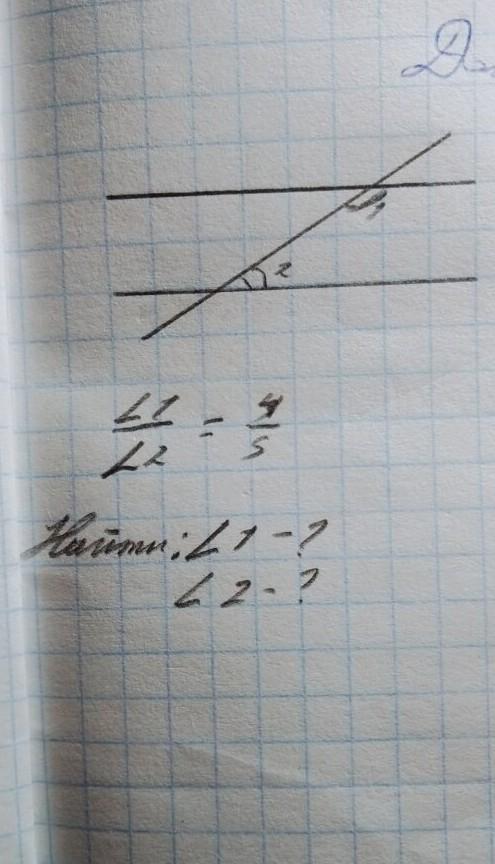 1
2
∠1/∠2 = 4/5
Найти: ∠1 - ?
∠2 - ?